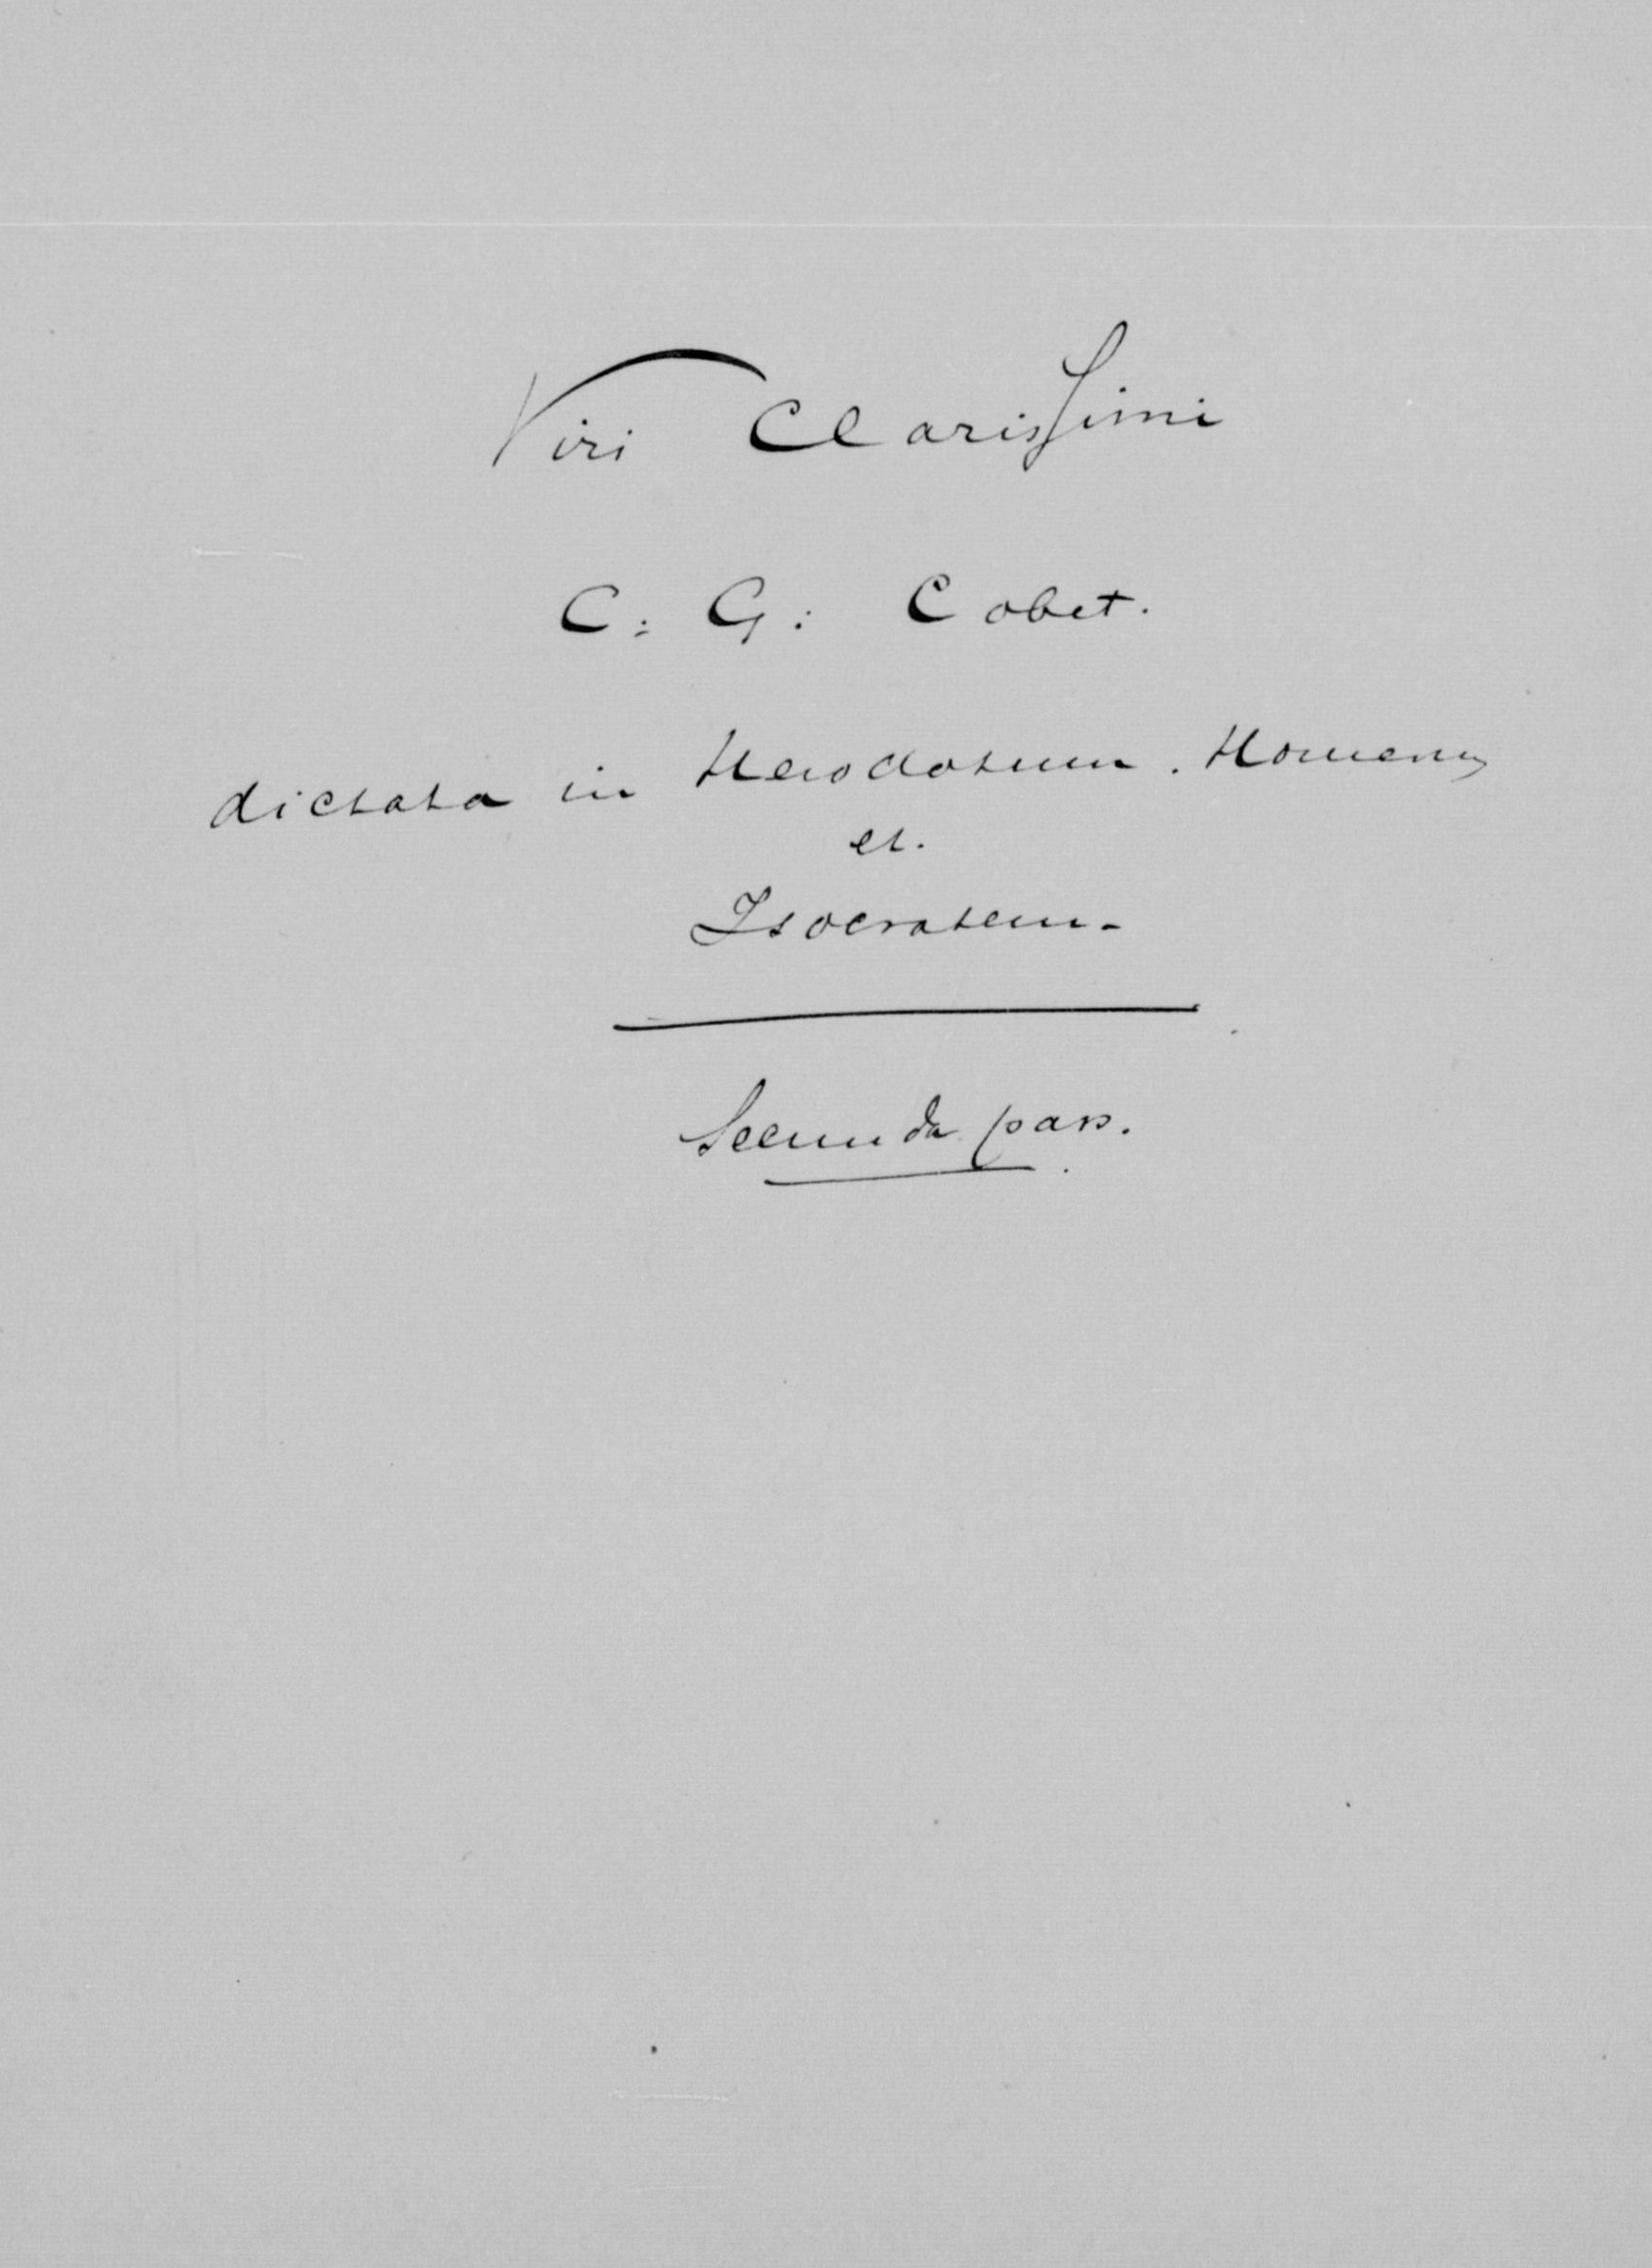 Viri Clarissimi
C: G: Cobet.
dictata in Herodotum. Homerum
et.
Isocratem.
Secunda pars.